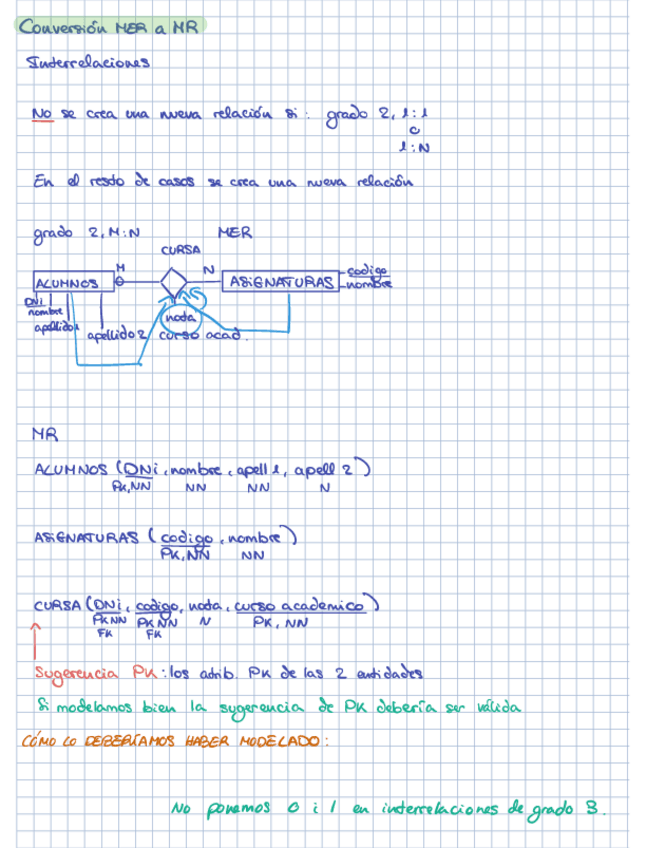 Conversión MER a MR
Interrelaciones
No se crea una nueva relación si: grado 2, 1:1
o
1:N
En el resto de casos se crea una nueva relación
grado 2, M:N MER
CURSA
M N
ALUMNOS ASiGNATURAS codigo
nombre
DNi
nombre
apellido1
apellido2
nota
curso acad.
MR
ALUMNOS (DNi, nombre, apell 1, apell 2)
PK,NN NN NN N
ASiGNATURAS (codigo, nombre)
PK,NN NN
CURSA (DNi, codigo, nota, curso academico)
PK NN PK NN N PK, NN
FK FK
Sugerencia PK: los atrib. PK de las 2 entidades
Si modelamos bien la sugerencia de PK debería ser válida
CÓMO LO DEBERÍAMOS HABER MODELADO:
No ponemos 0 i 1 en interrelaciones de grado 3.